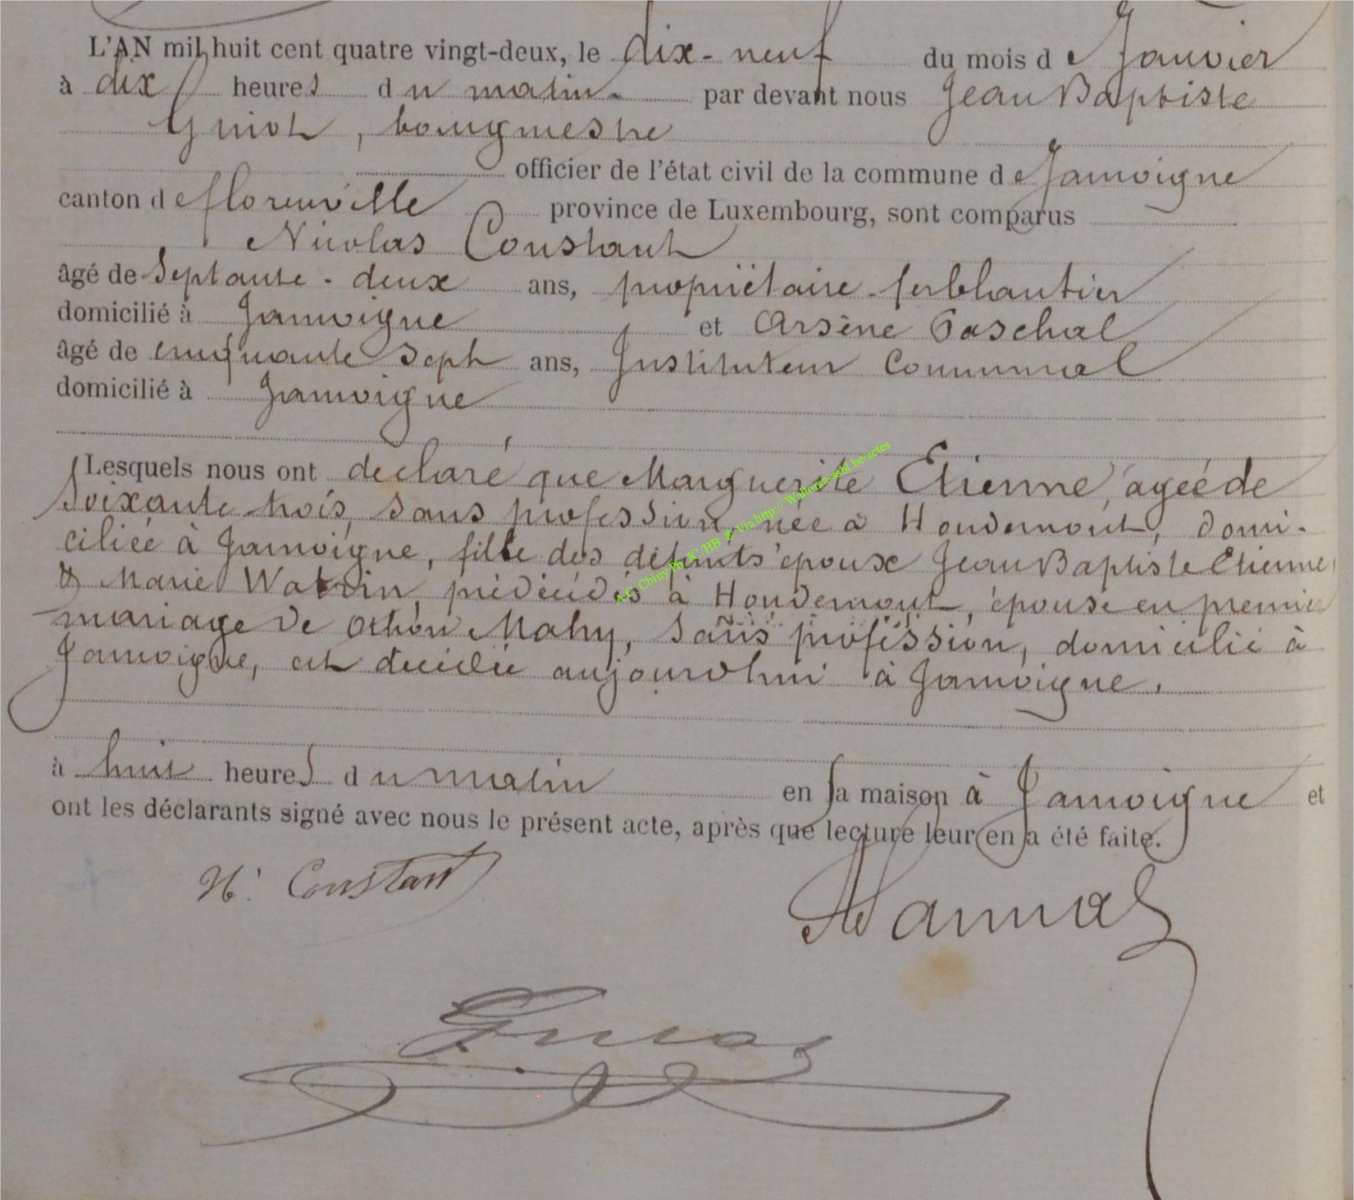 L'AN mil huit cent quatre vingt-deux, le dix-neuf du mois de Janvier
à dix heures du matin par devant nous Jean Baptiste
Guiot, bourgmestre
officier de l'état civil de la commune de Jamoigne
canton de florenville province de Luxembourg, sont comparus
Nicolas Constant
âgé de Septante-deux ans, propriétaire-ferblantier
domicilié à Jamoigne et Arsène Paschal
âgé de cinquante sept ans, Instituteur Communal
domicilié à Jamoigne
Lesquels nous ont déclaré que Marguerite Etienne, agée de
Soixante-trois, sans profession, née à Houdemont, domi-
ciliée à Jamoigne, fille des défunts époux Jean Baptiste Etienne
& Marie Watrin, prédécédés à Houdemont, épouse en premier
mariage de Othon Mahy, sans profession, domicilié à
Jamoigne, est décédée aujourd'hui à Jamoigne.
à huit heures du matin en sa maison à Jamoigne et
ont les déclarants signé avec nous le présent acte, après que lecture leur en a été faite.
N. Constant